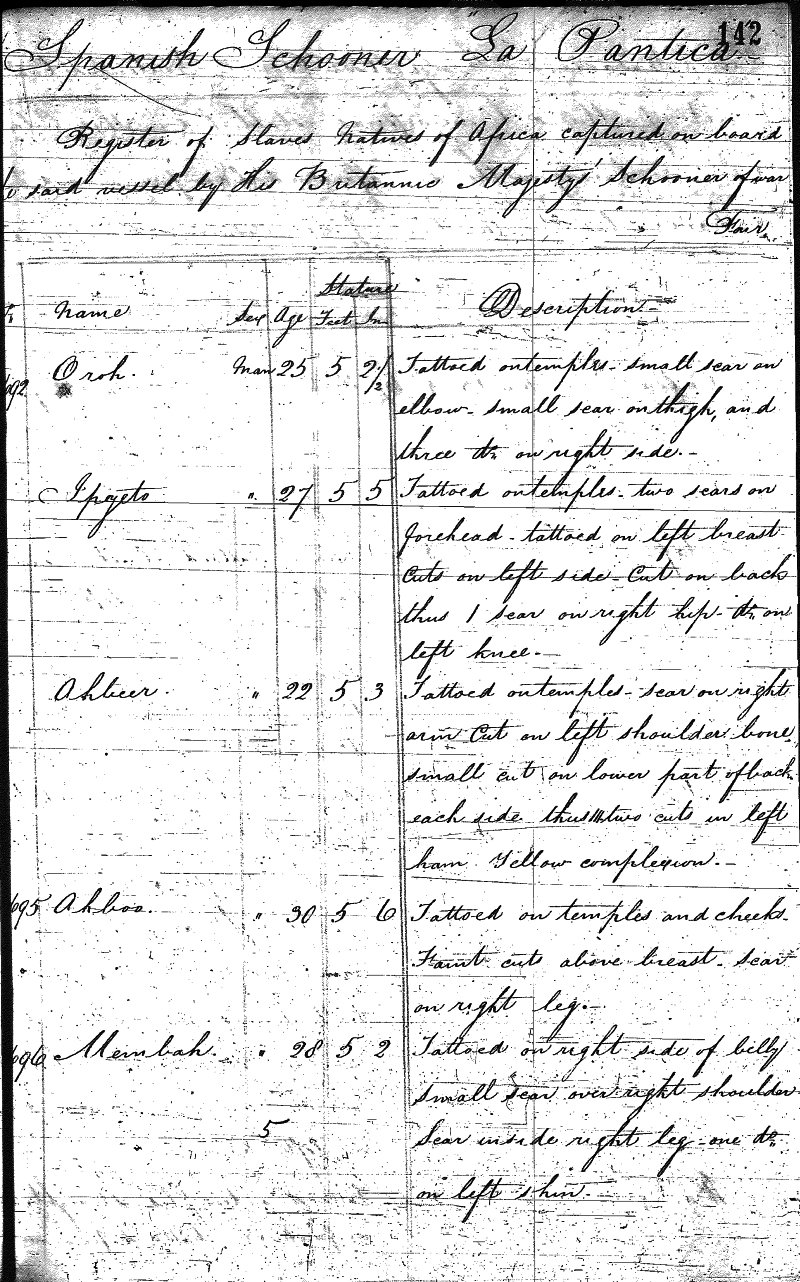 142
Spanish Schooner La Pantica
Register of Slaves Natives of Africa captured on board
said vessel by His Britannic Majestys' Schooner of war
Fair
Stature
Name Sex Age Feet In Description
692 Oroh. Man 25 5 2 1/2 Tattoed on temples - small scar on
elbow - small scar on thigh, and
three do. on right side. -
Ipgeto " 27 5 5 Tattoed on temples - two scars on
forehead - tattoed on left breast
Cuts on left side - Cut on back
thus 1 scar on right hip - do. on
left knee. -
Ahbeer. " 22 5 3 Tattoed on temples - scar on right
arm Cut on left shoulder bone
small cut on lower part of back
each side thus two cuts in left
ham Yellow complexion. -
695 Ahboo. " 30 5 6 Tattoed on temples and cheeks -
Faint cuts above breast - scar
on right leg. -
696 Membah. " 28 5 2 Tattoed on right side of belly
small scar over right shoulder
5 Scar inside right leg - one do.
on left shin. -